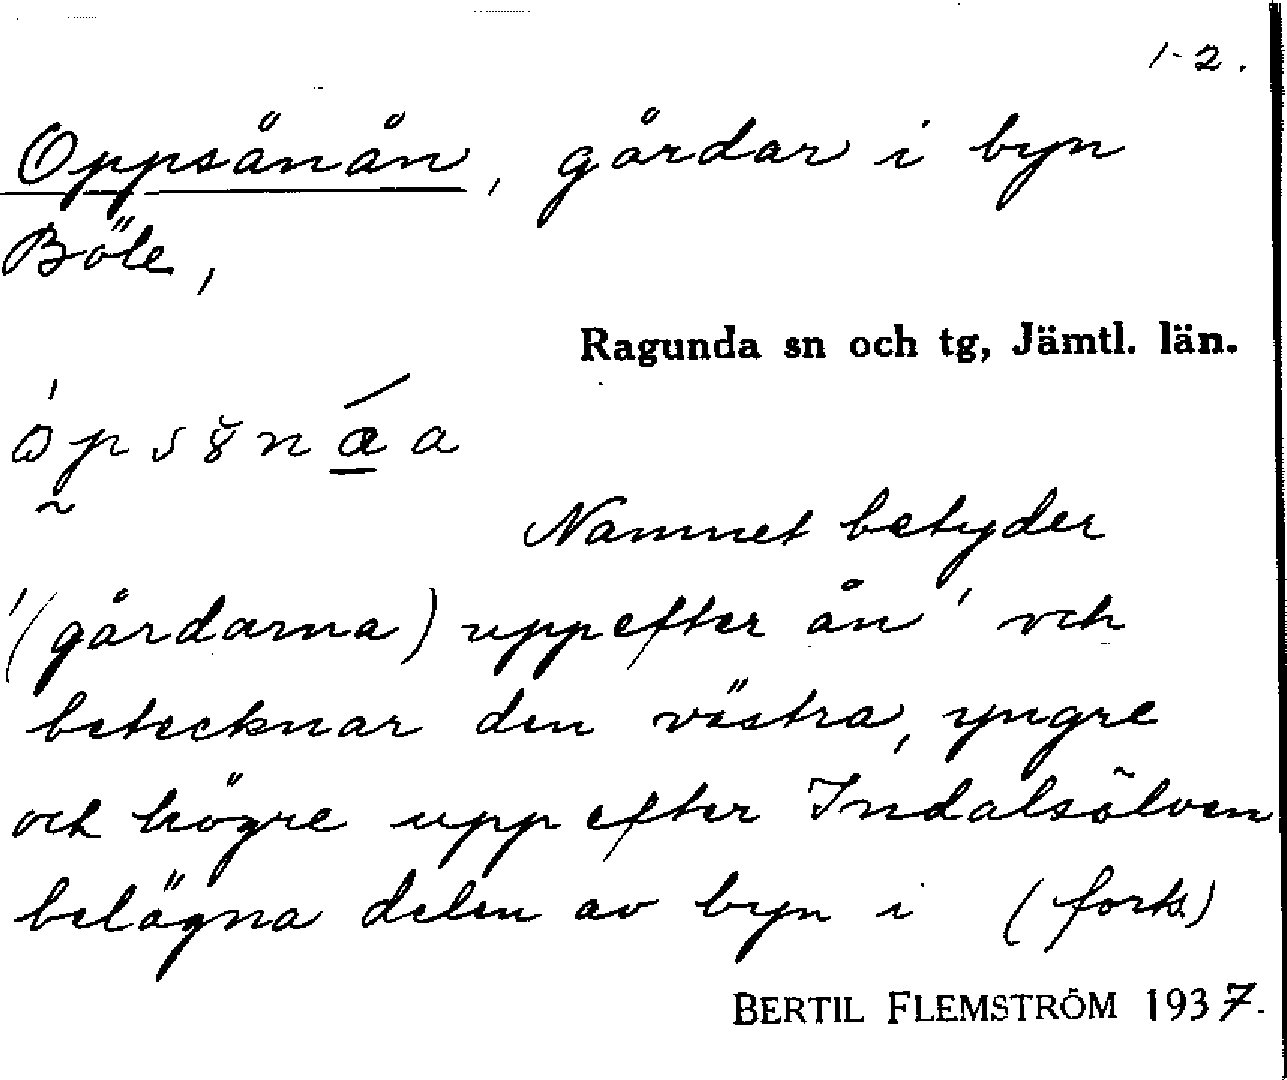 1-2.
Oppsånån, gårdar i byn
Böle,
Ragunda sn och tg, Jämtl. län.
Namnet betyder
'(gårdarna) uppefter ån' och
betecknar den västra, yngre
och högre upp efter Indalsälven
belägna delen av byn i (forts)
BERTIL FLEMSTRÖM 1937.